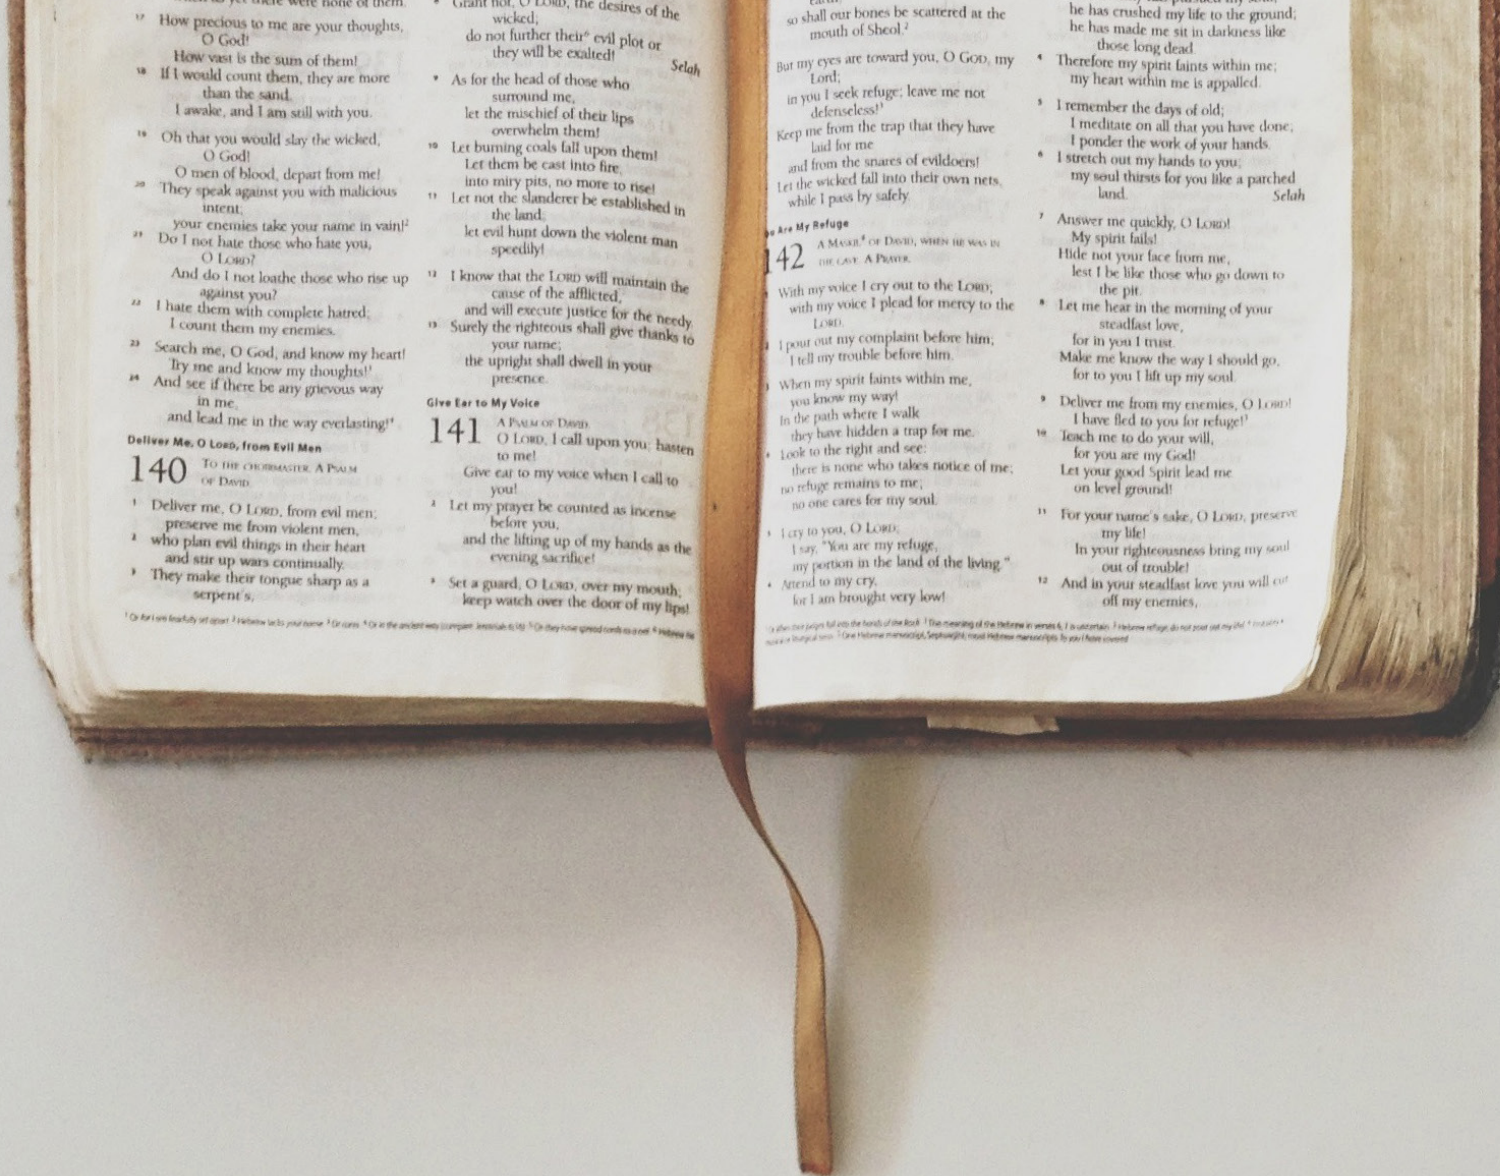 17 How precious to me are your thoughts,
O God!
How vast is the sum of them!
18 If I would count them, they are more
than the sand.
I awake, and I am still with you.
19 Oh that you would slay the wicked,
O God!
O men of blood, depart from me!
20 They speak against you with malicious
intent;
your enemies take your name in vain!2
21 Do I not hate those who hate you,
O LORD?
And do I not loathe those who rise up
against you?
22 I hate them with complete hatred;
I count them my enemies.
23 Search me, O God, and know my heart!
Try me and know my thoughts!3
24 And see if there be any grievous way
in me,
and lead me in the way everlasting!4
Deliver Me, O LORD, from Evil Men
140 TO THE CHOIRMASTER. A PSALM
OF DAVID.
1 Deliver me, O LORD, from evil men;
preserve me from violent men,
2 who plan evil things in their heart
and stir up wars continually.
3 They make their tongue sharp as a
serpent's,
8 Grant not, O LORD, the desires of the
wicked;
do not further their6 evil plot or
they will be exalted!
Selah
9 As for the head of those who
surround me,
let the mischief of their lips
overwhelm them!
10 Let burning coals fall upon them!
Let them be cast into fire,
into miry pits, no more to rise!
11 Let not the slanderer be established in
the land;
let evil hunt down the violent man
speedily!
12 I know that the LORD will maintain the
cause of the afflicted,
and will execute justice for the needy.
13 Surely the righteous shall give thanks to
your name;
the upright shall dwell in your
presence.
Give Ear to My Voice
141 A PSALM OF DAVID.
O LORD, I call upon you; hasten
to me!
Give ear to my voice when I call to
you!
2 Let my prayer be counted as incense
before you,
and the lifting up of my hands as the
evening sacrifice!
3 Set a guard, O LORD, over my mouth;
keep watch over the door of my lips!
1 Or for I am fearfully set apart 2 Hebrew lacks your name 3 Or cares 4 Or in the ancient way (compare Jeremiah 6:16) 5 Or they have spread cords as a net 6 Hebrew his
so shall our bones be scattered at the
mouth of Sheol.2
But my eyes are toward you, O GOD, my
Lord;
in you I seek refuge; leave me not
defenseless!3
Keep me from the trap that they have
laid for me
and from the snares of evildoers!
Let the wicked fall into their own nets,
while I pass by safely.
Are My Refuge
142 A MASKIL4 OF DAVID, WHEN HE WAS IN
THE CAVE. A PRAYER.
With my voice I cry out to the LORD;
with my voice I plead for mercy to the
LORD.
2 I pour out my complaint before him;
I tell my trouble before him.
3 When my spirit faints within me,
you know my way!
In the path where I walk
they have hidden a trap for me.
4 Look to the right and see:
there is none who takes notice of me;
no refuge remains to me;
no one cares for my soul.
5 I cry to you, O LORD;
I say, "You are my refuge,
my portion in the land of the living."
6 Attend to my cry,
for I am brought very low!
he has crushed my life to the ground;
he has made me sit in darkness like
those long dead.
4 Therefore my spirit faints within me;
my heart within me is appalled.
5 I remember the days of old;
I meditate on all that you have done;
I ponder the work of your hands.
6 I stretch out my hands to you;
my soul thirsts for you like a parched
land. Selah
7 Answer me quickly, O LORD!
My spirit fails!
Hide not your face from me,
lest I be like those who go down to
the pit.
8 Let me hear in the morning of your
steadfast love,
for in you I trust.
Make me know the way I should go,
for to you I lift up my soul.
9 Deliver me from my enemies, O LORD!
I have fled to you for refuge!5
10 Teach me to do your will,
for you are my God!
Let your good Spirit lead me
on level ground!
11 For your name's sake, O LORD, preserve
my life!
In your righteousness bring my soul
out of trouble!
12 And in your steadfast love you will cut
off my enemies,
fall into the hands of the Rock 2 The meaning of the Hebrew in verses 6, 7 is uncertain 3 Hebrew refuge; do not pour out my life! 4 Probably a
musical or liturgical term 5 One Hebrew manuscript, Septuagint; most Hebrew manuscripts To you I have covered